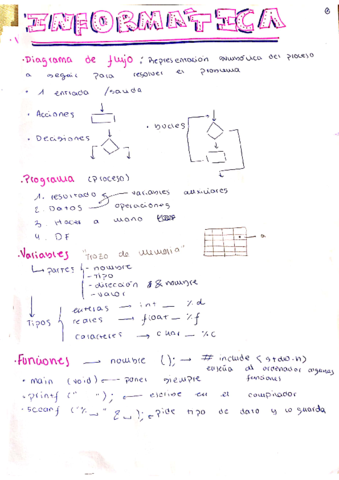 INFORMATICA
· Diagrama de flujo : Representación esquemática del proceso
a seguir para resolver el problema
· 1 entrada /salida
· Acciones
· Bucles
· Decisiones
· Programa (Proceso)
1. resultado variables auxiliares
2. Datos operaciones
3. Hacer a mano
4. DF
· Variables "trozo de memoria"
partes - nombre
- tipo
- dirección & nombre
- valor
Tipos enteras → int — %d
reales → float — %f
caracteres → char — %c
· Funciones → nombre ( ); → # include <stdio.h>
enseña al ordenador algunas
funciones
· main (void) ← poner siempre
· printf (" "); ← escribe en el computador
· scanf ("%_" &_); ← pide tipo de dato y lo guarda